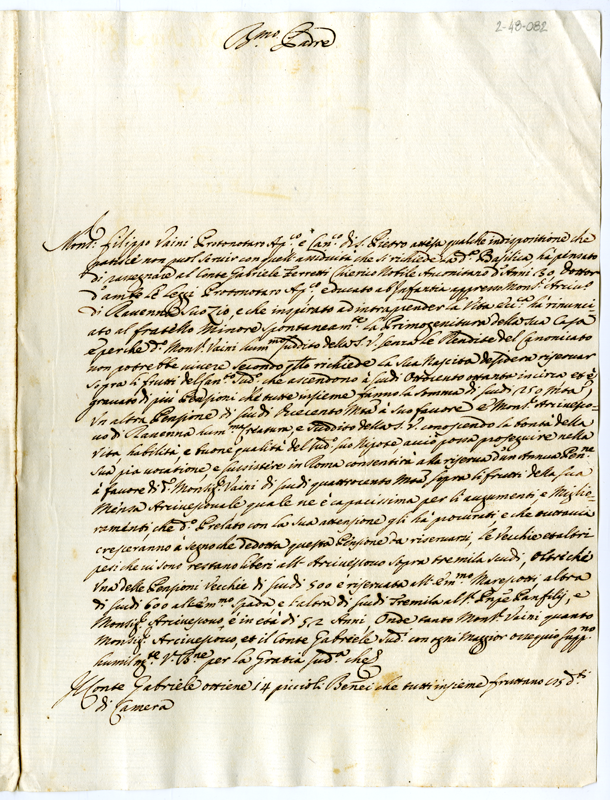 2-48-082
B.mo Padre
Mons.r Filippo Vaini Protonotaro Ap.co e Can.co di S. Pietro attesa qualche indispositione che
patisce non puol servir con quell'assiduità che si richiede la d.a Basilica, hà pensato
di rassegnare al Conte Gabriele Ferretti Chierico Nobile Anconitano d'Anni 30, dottor
d'ambe le leggi Protonotaro Ap.co educato ab Infantia appresso Mons.r Arcivo
di Ravenna suo Zio, e che inspirato ad intraprender la Vita ecc.ca hà rinunci-
ato al fratello Minore spontaneam.te la Primogenitura della sua Casa
e perche d.o Mons.r Vaini hum.mo sudito della S.V. senza le Rendite del Canonicato
non potrebbe vivere secondo richiede la sua Nascita desidera riservar
sopra li frutti del Can.to sud.o che ascendono à scudi Ottocento ottanta incirca et è
gravato di più Pensioni che tutte insieme fanno la somma di scudi 250 M.ta
Un altra Pensione di scudi Trecento M.ta à suo favore e Mons.r Arcivesco-
vo di Ravenna hum.ma creatura, e suddito della S.V. conoscendo la bontà della
Vita habilità, e buone qualità del sud.o suo Nipote acciò possa proseguire nella
sua pia vocatione e sussistere in Roma consentirà alla riserva d'un Annua Pen.ne
à favore di d.o Monsig.r Vaini di scudi quattrocento M.ta sopra li frutti della sua
Mensa Arcivescovale quale ne è capacissima per li augumenti e Miglio-
ramenti, che d.o Prelato con la sua attensione gli hà procurati e che tuttavia
cresceranno à segno che dedotta questa Pensione da riservarsi, le Vecchie et altri
pesi che vi sono restano liberi all'Arcivescovo sopra tremila scudi, oltre che
Una delle Pensioni Vecchie di scudi 500 è riservata all'Em.mo Marescotti altra
di scudi 600 all'Em.mo Spada e l'altra di scudi Tremila al Pnpe Panfilij, e
Monsig.r Arcivescovo, è in età di 52 Anni. Onde tanto Mons.r Vaini quanto
Monsig.r Arcivescovo, et il Conte Gabriele sud.o con ogni Maggior ossequio supp.no
humilm.te V. B.ne per la Gratia sud.a che
Il Conte Gabriele ottiene 14 piccioli Benef.ci che tutti insieme fruttano
di Camera